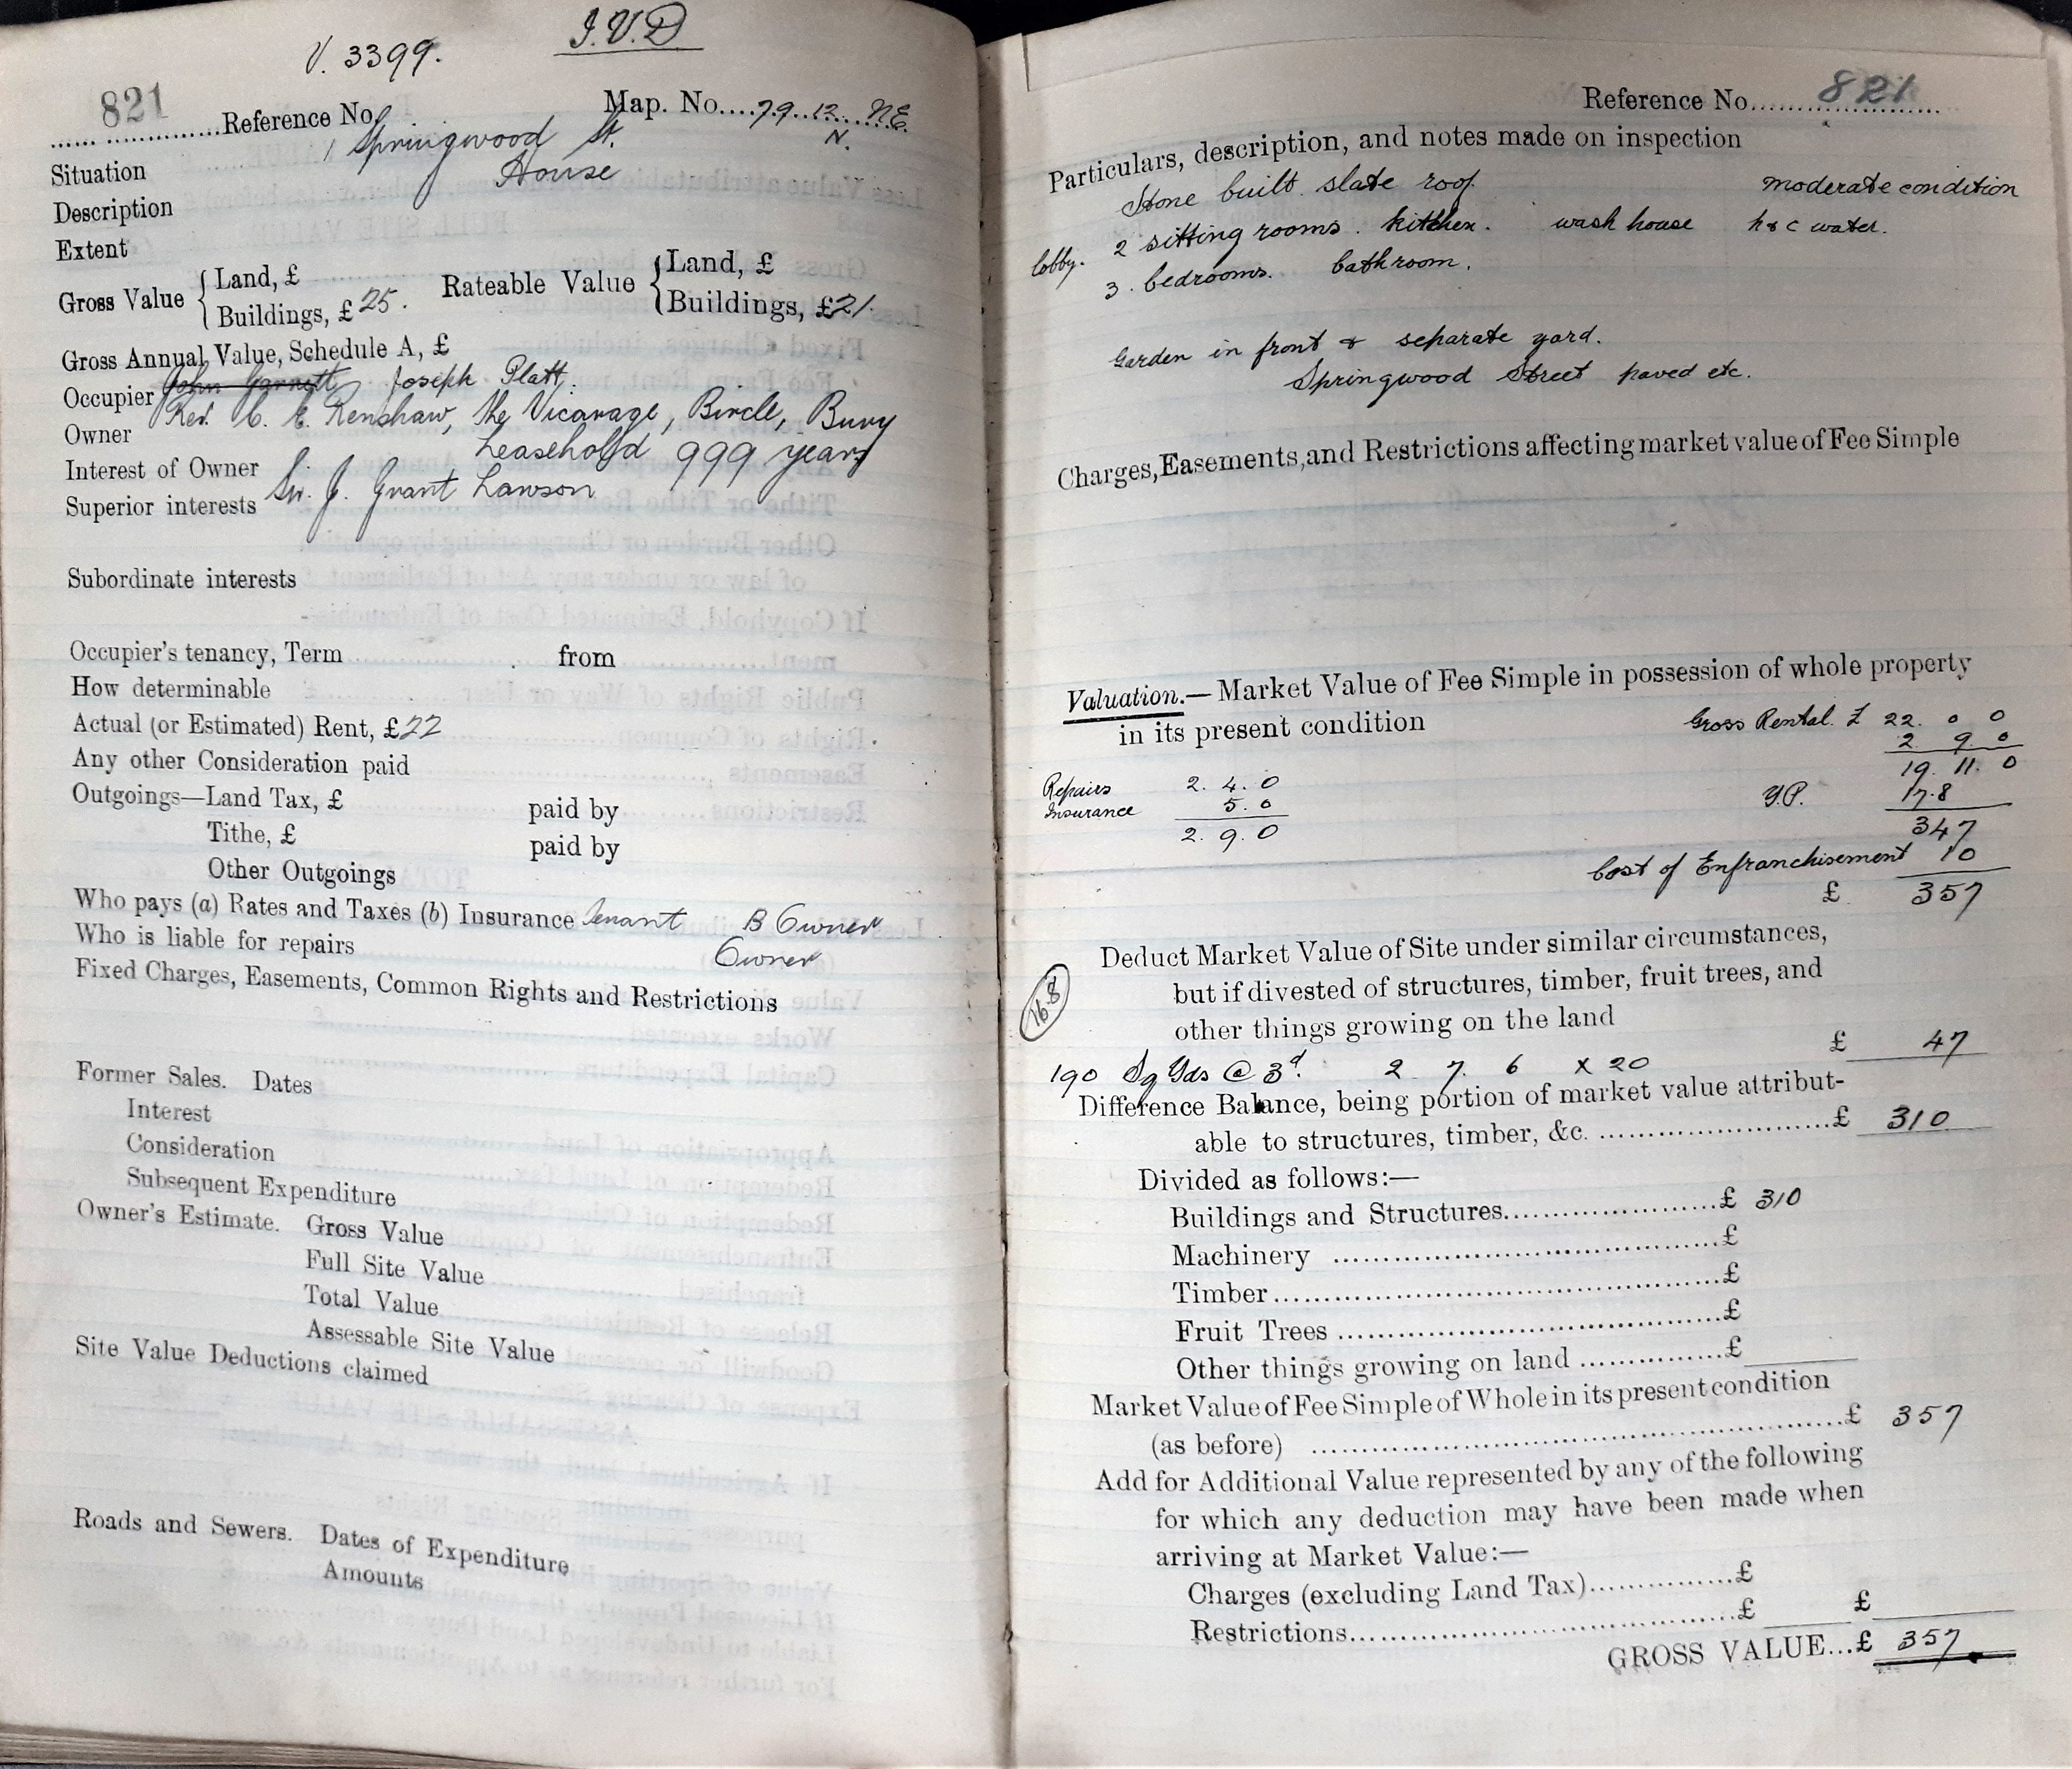 V. 3399.
I.V.D
821 Reference No. Map. No. 79.12. N.E.
N.
Situation 1 Springwood St.
Description House
Extent
Gross Value { Land, £ Rateable Value { Land, £
Buildings, £ 25. Buildings, £21.
Gross Annual Value, Schedule A, £
Occupier John Garnett Joseph Platt.
Owner Rev. C. E. Renshaw, The Vicarage, Bircle, Bury
Interest of Owner Leasehold 999 years
Superior interests Sir. J. Grant Lawson
Subordinate interests
Occupier's tenancy, Term from
How determinable
Actual (or Estimated) Rent, £22
Any other Consideration paid
Outgoings—Land Tax, £ paid by
Tithe, £ paid by
Other Outgoings
Who pays (a) Rates and Taxes (b) Insurance tenant B Owner
Who is liable for repairs Owner
Fixed Charges, Easements, Common Rights and Restrictions
Former Sales. Dates
Interest
Consideration
Subsequent Expenditure
Owner's Estimate. Gross Value
Full Site Value
Total Value
Assessable Site Value
Site Value Deductions claimed
Roads and Sewers. Dates of Expenditure
Amounts
Reference No. 821
Particulars, description, and notes made on inspection
Stone built slate roof. moderate condition
lobby. 2 sitting rooms. kitchen. wash house h & c water.
3. bedrooms. bathroom.
Garden in front & separate yard.
Springwood Street paved etc.
Charges, Easements, and Restrictions affecting market value of Fee Simple
Valuation.—Market Value of Fee Simple in possession of whole property
in its present condition Gross Rental. £ 22. 0 0
2. 9. 0
Repairs 2. 4. 0 19. 11. 0
Insurance 5. 0 Y.P. 17.8
2. 9. 0 347
Cost of Enfranchisement 10
£ 357
Deduct Market Value of Site under similar circumstances,
but if divested of structures, timber, fruit trees, and
16.8
other things growing on the land £ 47
190 Sq Yds @ 3d. 2 7. 6 x 20
Difference Balance, being portion of market value attribut-
able to structures, timber, &c. £ 310
Divided as follows:—
Buildings and Structures £ 310
Machinery £
Timber £
Fruit Trees £
Other things growing on land £
Market Value of Fee Simple of Whole in its present condition
(as before) £ 357
Add for Additional Value represented by any of the following
for which any deduction may have been made when
arriving at Market Value:—
Charges (excluding Land Tax) £
Restrictions £ £
GROSS VALUE...£ 357